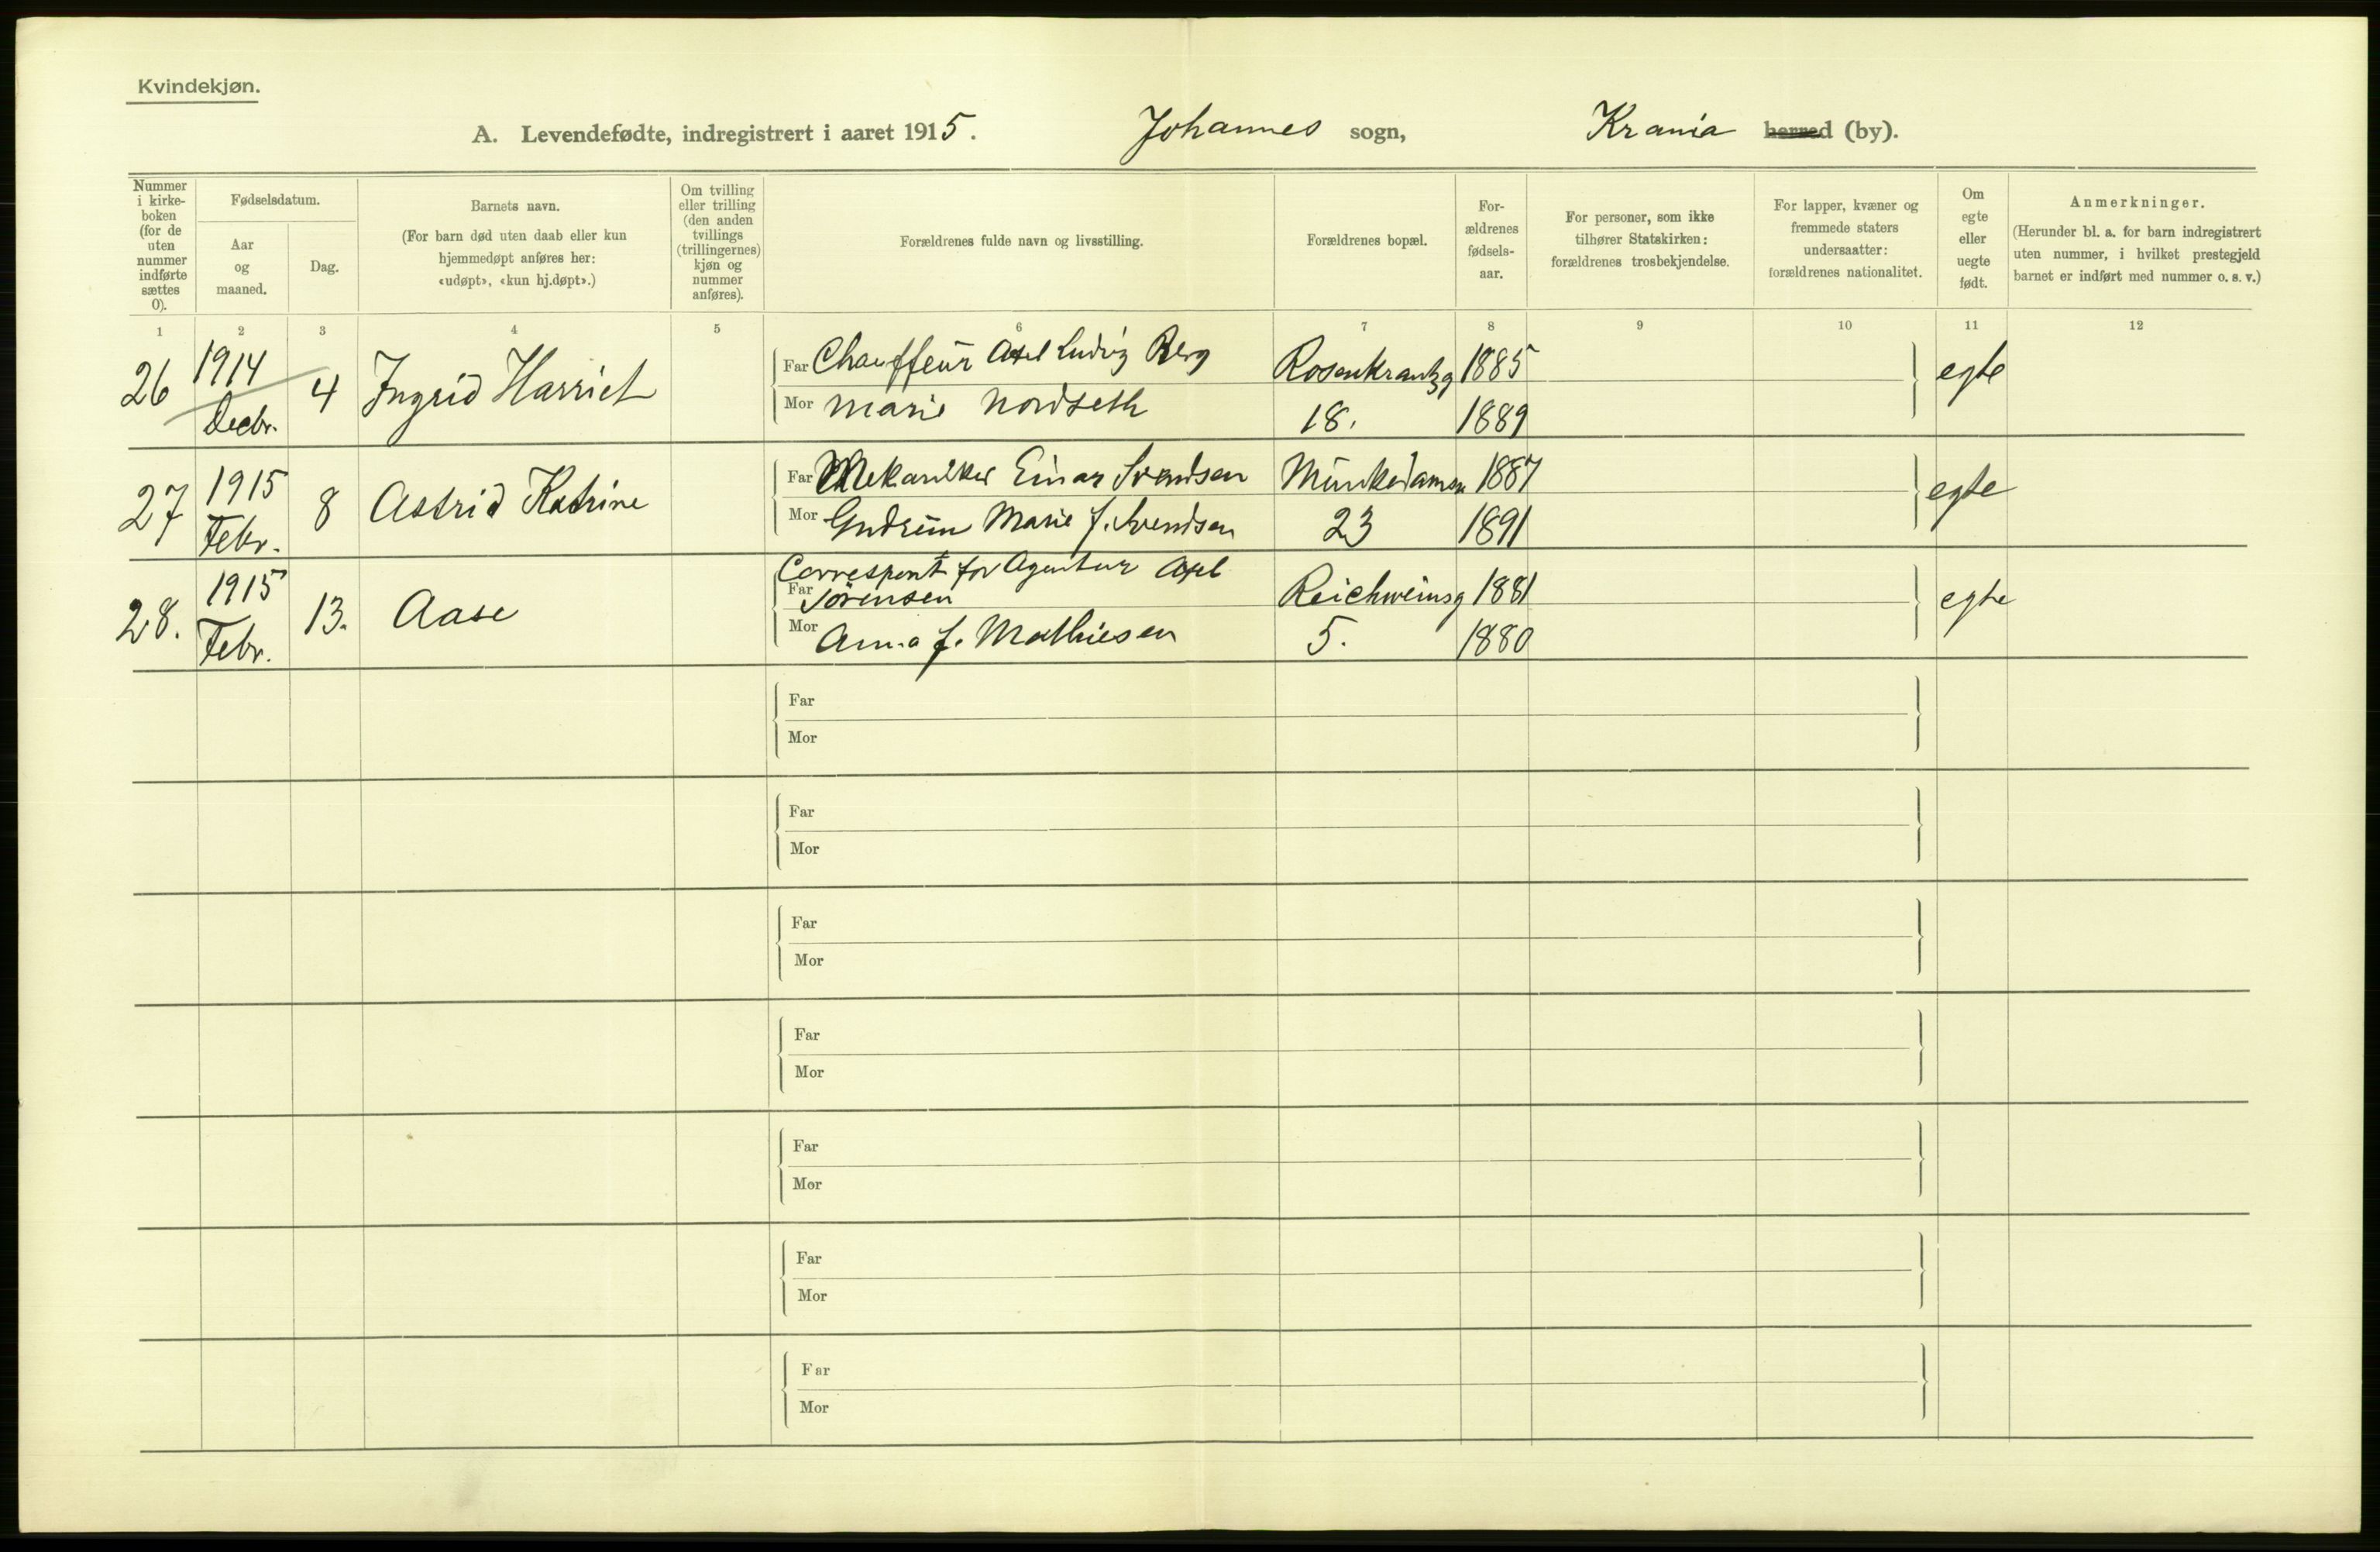 Kvindekjøn.
A. Levendefødte, indregistrert i aaret 1915. Johannes sogn, Krania herred (by).
Nummer i kirke- boken (for de uten nummer indførte sættes 0).
Fødselsdatum.
Aar og maaned.
Dag.
Barnets navn.
(For barn død uten daab eller kun hjemmedøpt anføres her: «udøpt», «kun hj.døpt».)
Om tvilling eller trilling (den anden tvillings (trillingernes) kjøn og nummer anføres).
Forældrenes fulde navn og livsstilling.
Forældrenes bopæl.
For- ældrenes fødsels- aar.
For personer, som ikke tilhører Statskirken: forældrenes trosbekjendelse.
For lapper, kvæner og fremmede staters undersaatter: forældrenes nationalitet.
Om egte eller uegte født.
Anmerkninger.
(Herunder bl. a. for barn indregistrert uten nummer, i hvilket prestegjeld barnet er indført med nummer o. s. v.)
1 2 3 4 5 6 7 8 9 10 11 12
26 1914 Decbr. 4 Ingrid Harriet
Far Chauffeur Axel Ludvig Berg Rosenkrantzg 1885 egte
Mor Marie Nordseth 18. 1889
27 1915 Febr. 8 Astrid Katrine
Far Mekaniker Einar Svendsen Munkedamsv 1887 egte
Mor Gudrun Marie f. Svendsen 23 1891
28. 1915 Febr. 13. Aase
Correspont for Agentur Axel
Far Sörensen Reichweinsg 1881 egte
Mor Anna f. Mathiesen 5. 1880
Far
Mor
Far
Mor
Far
Mor
Far
Mor
Far
Mor
Far
Mor
Far
Mor